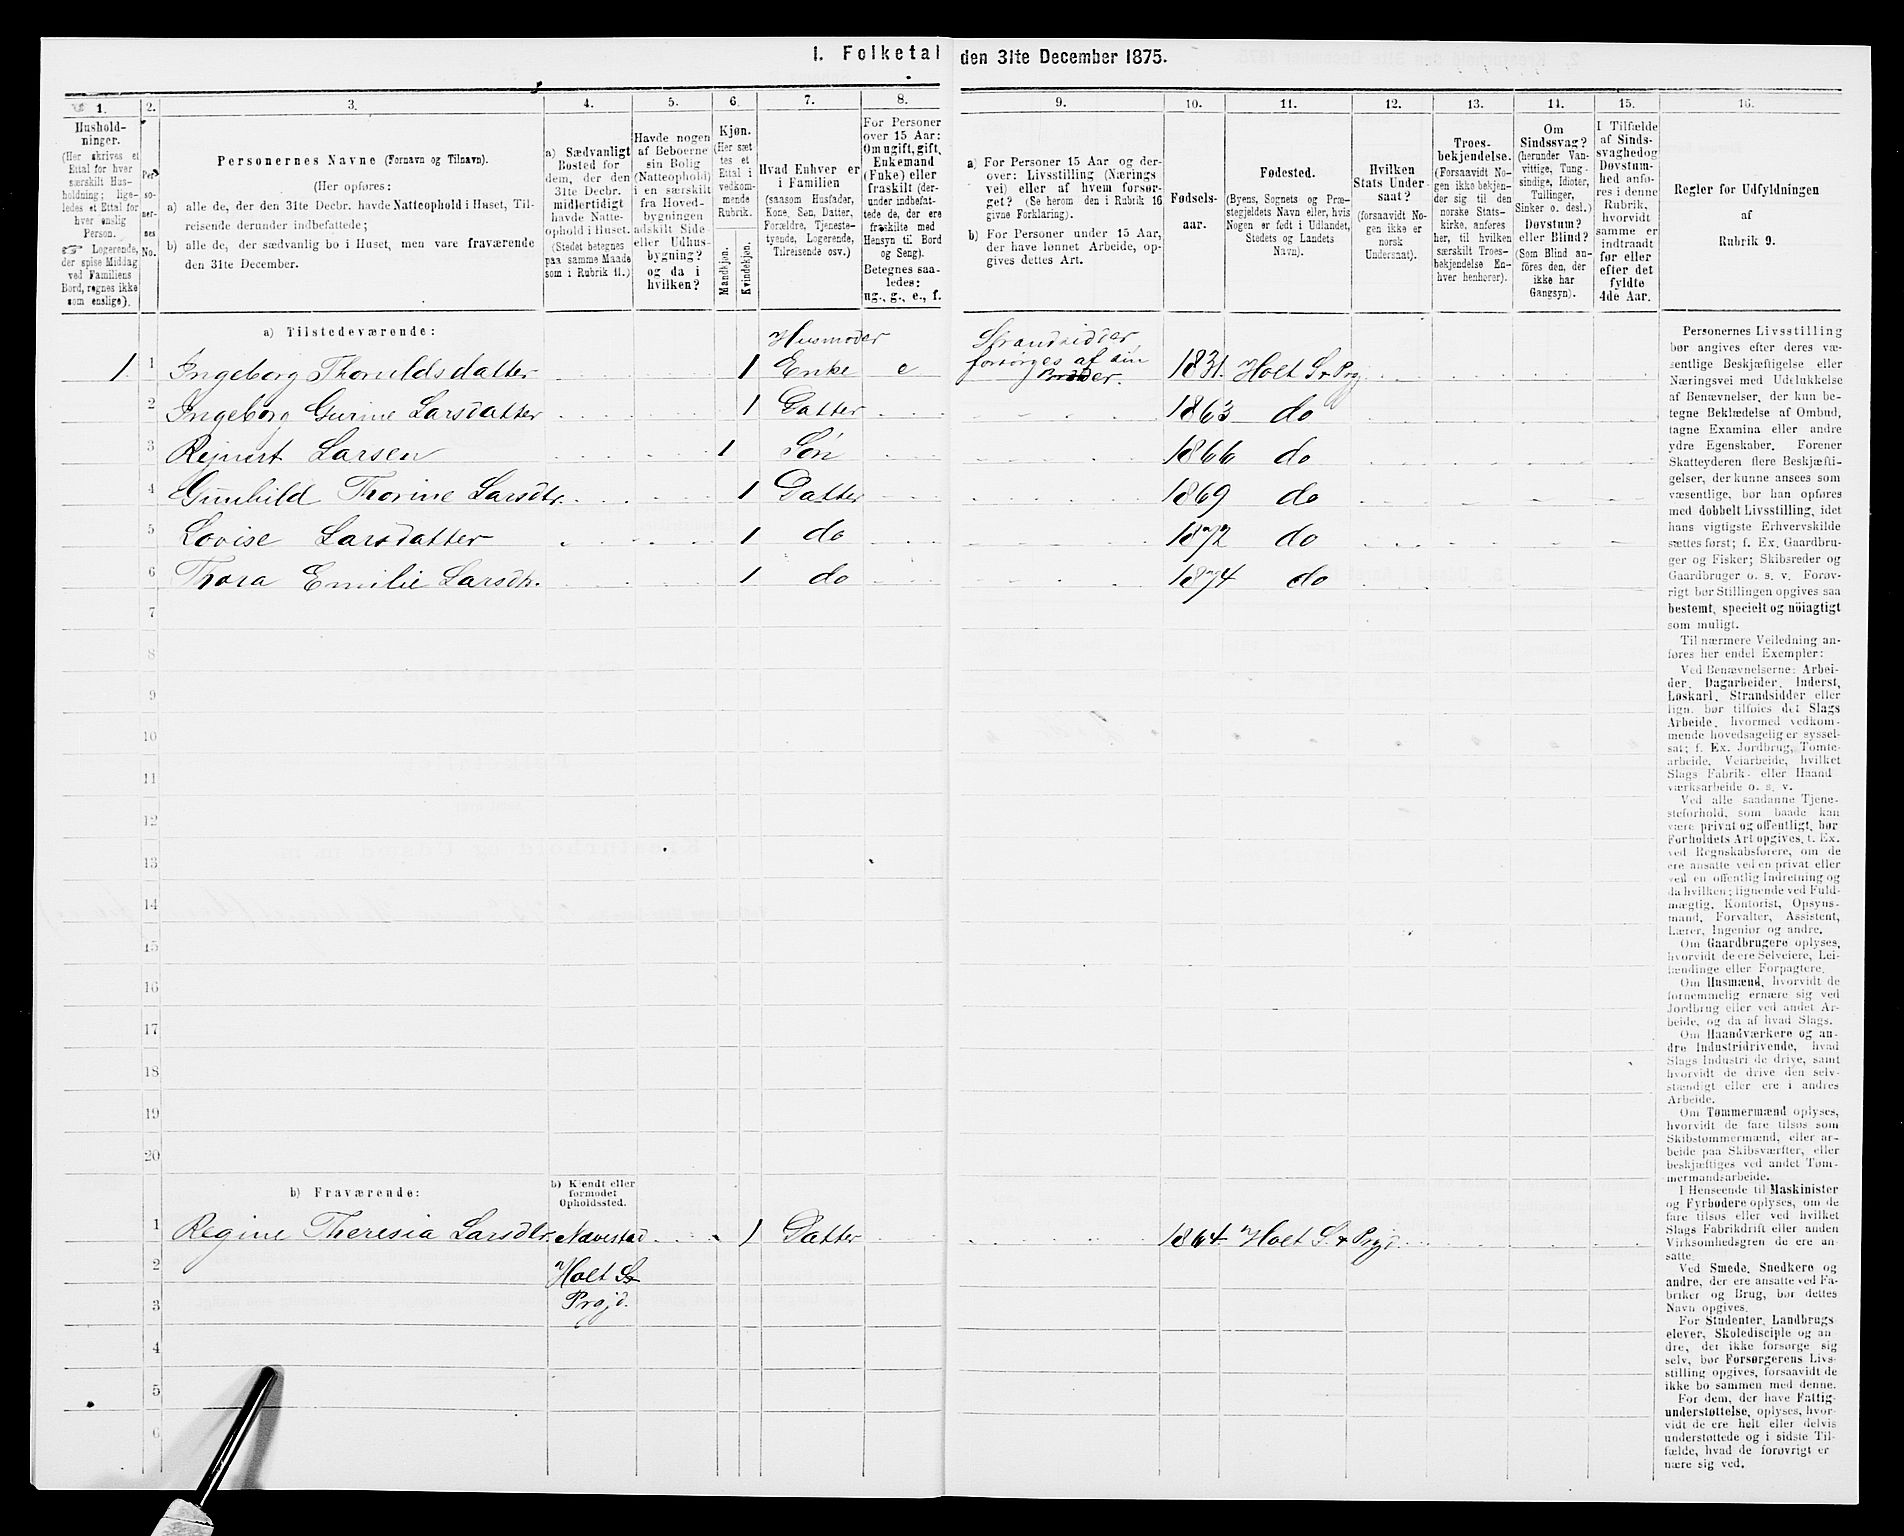 1. Folketal den 31te December 1875.
1. 2. 3. 4. 5. 6. 7. 8. 9. 10. 11. 12. 13. 14. 15. 16.
Hushold-
ninger.
(Her skrives et
Ettal for hver
særskilt Hus-
holdning; lige-
ledes et Ettal for
hver enslig
Person.
☞ Logerende,
der spise Middag
ved Familiens
Bord, regnes ikke
som enslige).
Per-
so-
ner-
nes
No.
Personernes Navne (Fornavn og Tilnavn).
(Her opføres:
a) alle de, der den 31te Decbr. havde Natteophold i Huset, Til-
reisende derunder indbefattede;
b) alle de, der sædvanlig bo i Huset, men vare fraværende
den 31te December.
a) Sædvanligt
Bosted for
dem, der den
31te Decbr.
midlertidigt
havde Natte-
ophold i Huset.
(Stedet betegnes
paa samme Maade
som i Rubrik 11.)
Havde nogen
af Beboerne
sin Bolig
(Natteophold)
i en særskilt
fra Hoved-
bygningen
adskilt Side-
eller Udhus-
bygning?
og da i
hvilken?
Kjøn.
(Her sæt
tes et
Ettal i
vedkom-
mende
Rubrik.
Mandkjøn.
Kvindekjøn.
Hvad Enhver er
i Familien
(saasom Husfader,
Kone, Søn, Datter,
Forældre, Tjeneste-
tyende, Logerende,
Tilreisende osv.)
For Personer
over 15 Aar:
Om ugift, gift,
Enkemand
(Enke) eller
fraskilt (der-
under indbefat-
tede de, der ere
fraskilte med
Hensyn til Bord
og Seng).
Betegnes saa-
ledes:
ug., g., e., f.
a) For Personer 15 Aar og der-
over: Livsstilling (Nærings
vei) eller af hvem forsør-
get? (Se herom den i Rubrik 16
givne Forklaring).
b) For Personer under 15 Aar,
der have lønnet Arbeide, op-
gives dettes Art.
Fødsels-
aar.
Fødested.
(Byens, Sognets og Præ-
stegjeldets Navn eller, hvis
Nogen er født i Udlandet,
Stedets og Landets
Navn).
Hvilken
Stats Under-
saat?
(forsaavidt No-
gen ikke er
norsk
Undersaat).
Troes-
bekjendelse.
(Forsaavidt No-
gen ikke bekjen-
der sig til den
norske Stats-
kirke, anføres
her, til hvilken
særskilt Troes-
bekjendelse En-
hver henhører).
Om
Sindssvag?
(herunder Van-
vittige, Tung-
sindige, Idioter,
Tullinger,
Sinker o. desl.)
Døvstum?
eller Blind?
(Som Blind an-
føres den, der
ikke har
Gangsyn).
I Tilfælde
af Sinds-
svaghed og
Døvstum-
hed anfø-
res i denne
Rubrik,
hvorvidt
samme er
indtraadt
før eller
efter det
fyldte
4de Aar.
Regler for Udfyldningen
af
Rubrik 9.
a) Tilstedeværende:
1. 1 Ingeborg Thoruldsdatter 1 Husmoder Enke e Strandsidder, forsørges af sin Broder. 1831. Holt S. Prg.
2 Ingeborg Gurine Larsdatter 1 Datter 1863 do
3 Rejnert Larsen 1 Søn 1866 do
4 Gunhild Thorine Larsdtr. 1 Datter 1869 do
5 Lovise Larsdatter 1 do 1872 do
6 Thora Emilie Larsdtr. 1 do 1874 do
7
8
9
10
11
12
13
14
15
16
17
18
19
20
b) Fraværende:
b) Kjendt eller
formodet
Opholdssted.
1 Regine Theresia Larsdtr. Nævestad 1 Datter 1864. Holt S. & Prgjd.
2 Holt S.
3 Prgjd.
4
5
6
Personernes Livsstilling
bør angives efter deres væ-
sentlige Beskjæftigelse eller
Næringsvei med Udelukkelse
af Benævnelser, der kun be-
tegne Beklædelse af Ombud,
tagne Examina eller andre
ydre Egenskaber. Forener
Skatteyderen flere Beskjæfti-
gelser, der kunne ansees som
væsentlige, bør han opføres
med dobbelt Livsstilling, idet
hans vigtigste Erhvervskilde
sættes først; f. Ex. Gaardbru-
ger og Fisker; Skibsreder og
Gaardbruger o. s. v. Forøv-
rigt bør Stillingen opgives saa
bestemt, specielt og nöiagtigt
som muligt.
Til nærmere Veiledning an-
føres her endel Exempler:
Ved Benævnelserne: Arbei-
der, Dagarbeider, Inderst,
Løskarl, Strandsidder eller
lign. bør tilføies det Slags
Arbeide, hvormed vedkom-
mende hovedsagelig er syssel-
sat; f. Ex. Jordbrug, Tomte-
arbeide, Veiarbeide, hvilket
Slags Fabrik- eller Haand-
værksarbeide o. s. v.
Ved alle saadanne Tjene-
steforhold, som baade kan
være privat og offentligt, bør
Forholdets Art opgives, t. Ex.
ved Regnskabsførere, om de
ere ansatte ved en privat eller
ved en offentlig Indretning og
da hvilken; lignende ved Fuld-
mægtig, Kontorist, Opsyns-
mand, Forvalter, Assistent,
Lærer, Ingeniør og andre.
Om Gaardbrugere oplyses,
hvorvidt de ere Selveiere, Lei-
lændinge eller Forpagtere.
Om Husmænd, hvorvidt de
fornemmelig ernære sig ved
Jordbrug eller ved andet Ar-
beide, og da af hvad Slags.
Om Haandværkere og an-
dre Industridrivende, hvad
Slags Industri de drive, samt
hvorvidt de drive den selv-
stændigt eller ere i andres
Arbeide.
Om Tømmermænd oplyses,
hvorvidt de fare tilsøs som
Skibstømmermænd, eller ar-
beide paa Skibsværfter, eller
beskjæftiges ved andet Tøm-
mermandsarbeide.
I Henseende til Maskinister
og Fyrbødere oplyses, om de
fare tilsøs eller ved hvilket
Slags Fabrikdrift eller anden
Virksomhedsgren de ere an-
satte.
Ved Smede, Snedkere og
andre, der ere ansatte ved Fa-
briker og Brug, bør dettes
Navn opgives.
For Studenter, Landbrugs-
elever, Skoledisciple og an-
dre, der ikke forsørge sig
selv, bør Forsørgerens Livs-
stilling opgives, forsaavidt de
ikke bo sammen med denne.
For dem, der have Fattig-
understøttelse, oplyses, hvor-
vidt de ere helt eller delvis
understøttede og i sidste Til-
fælde, hvad de forøvrigt er
nære sig ved.